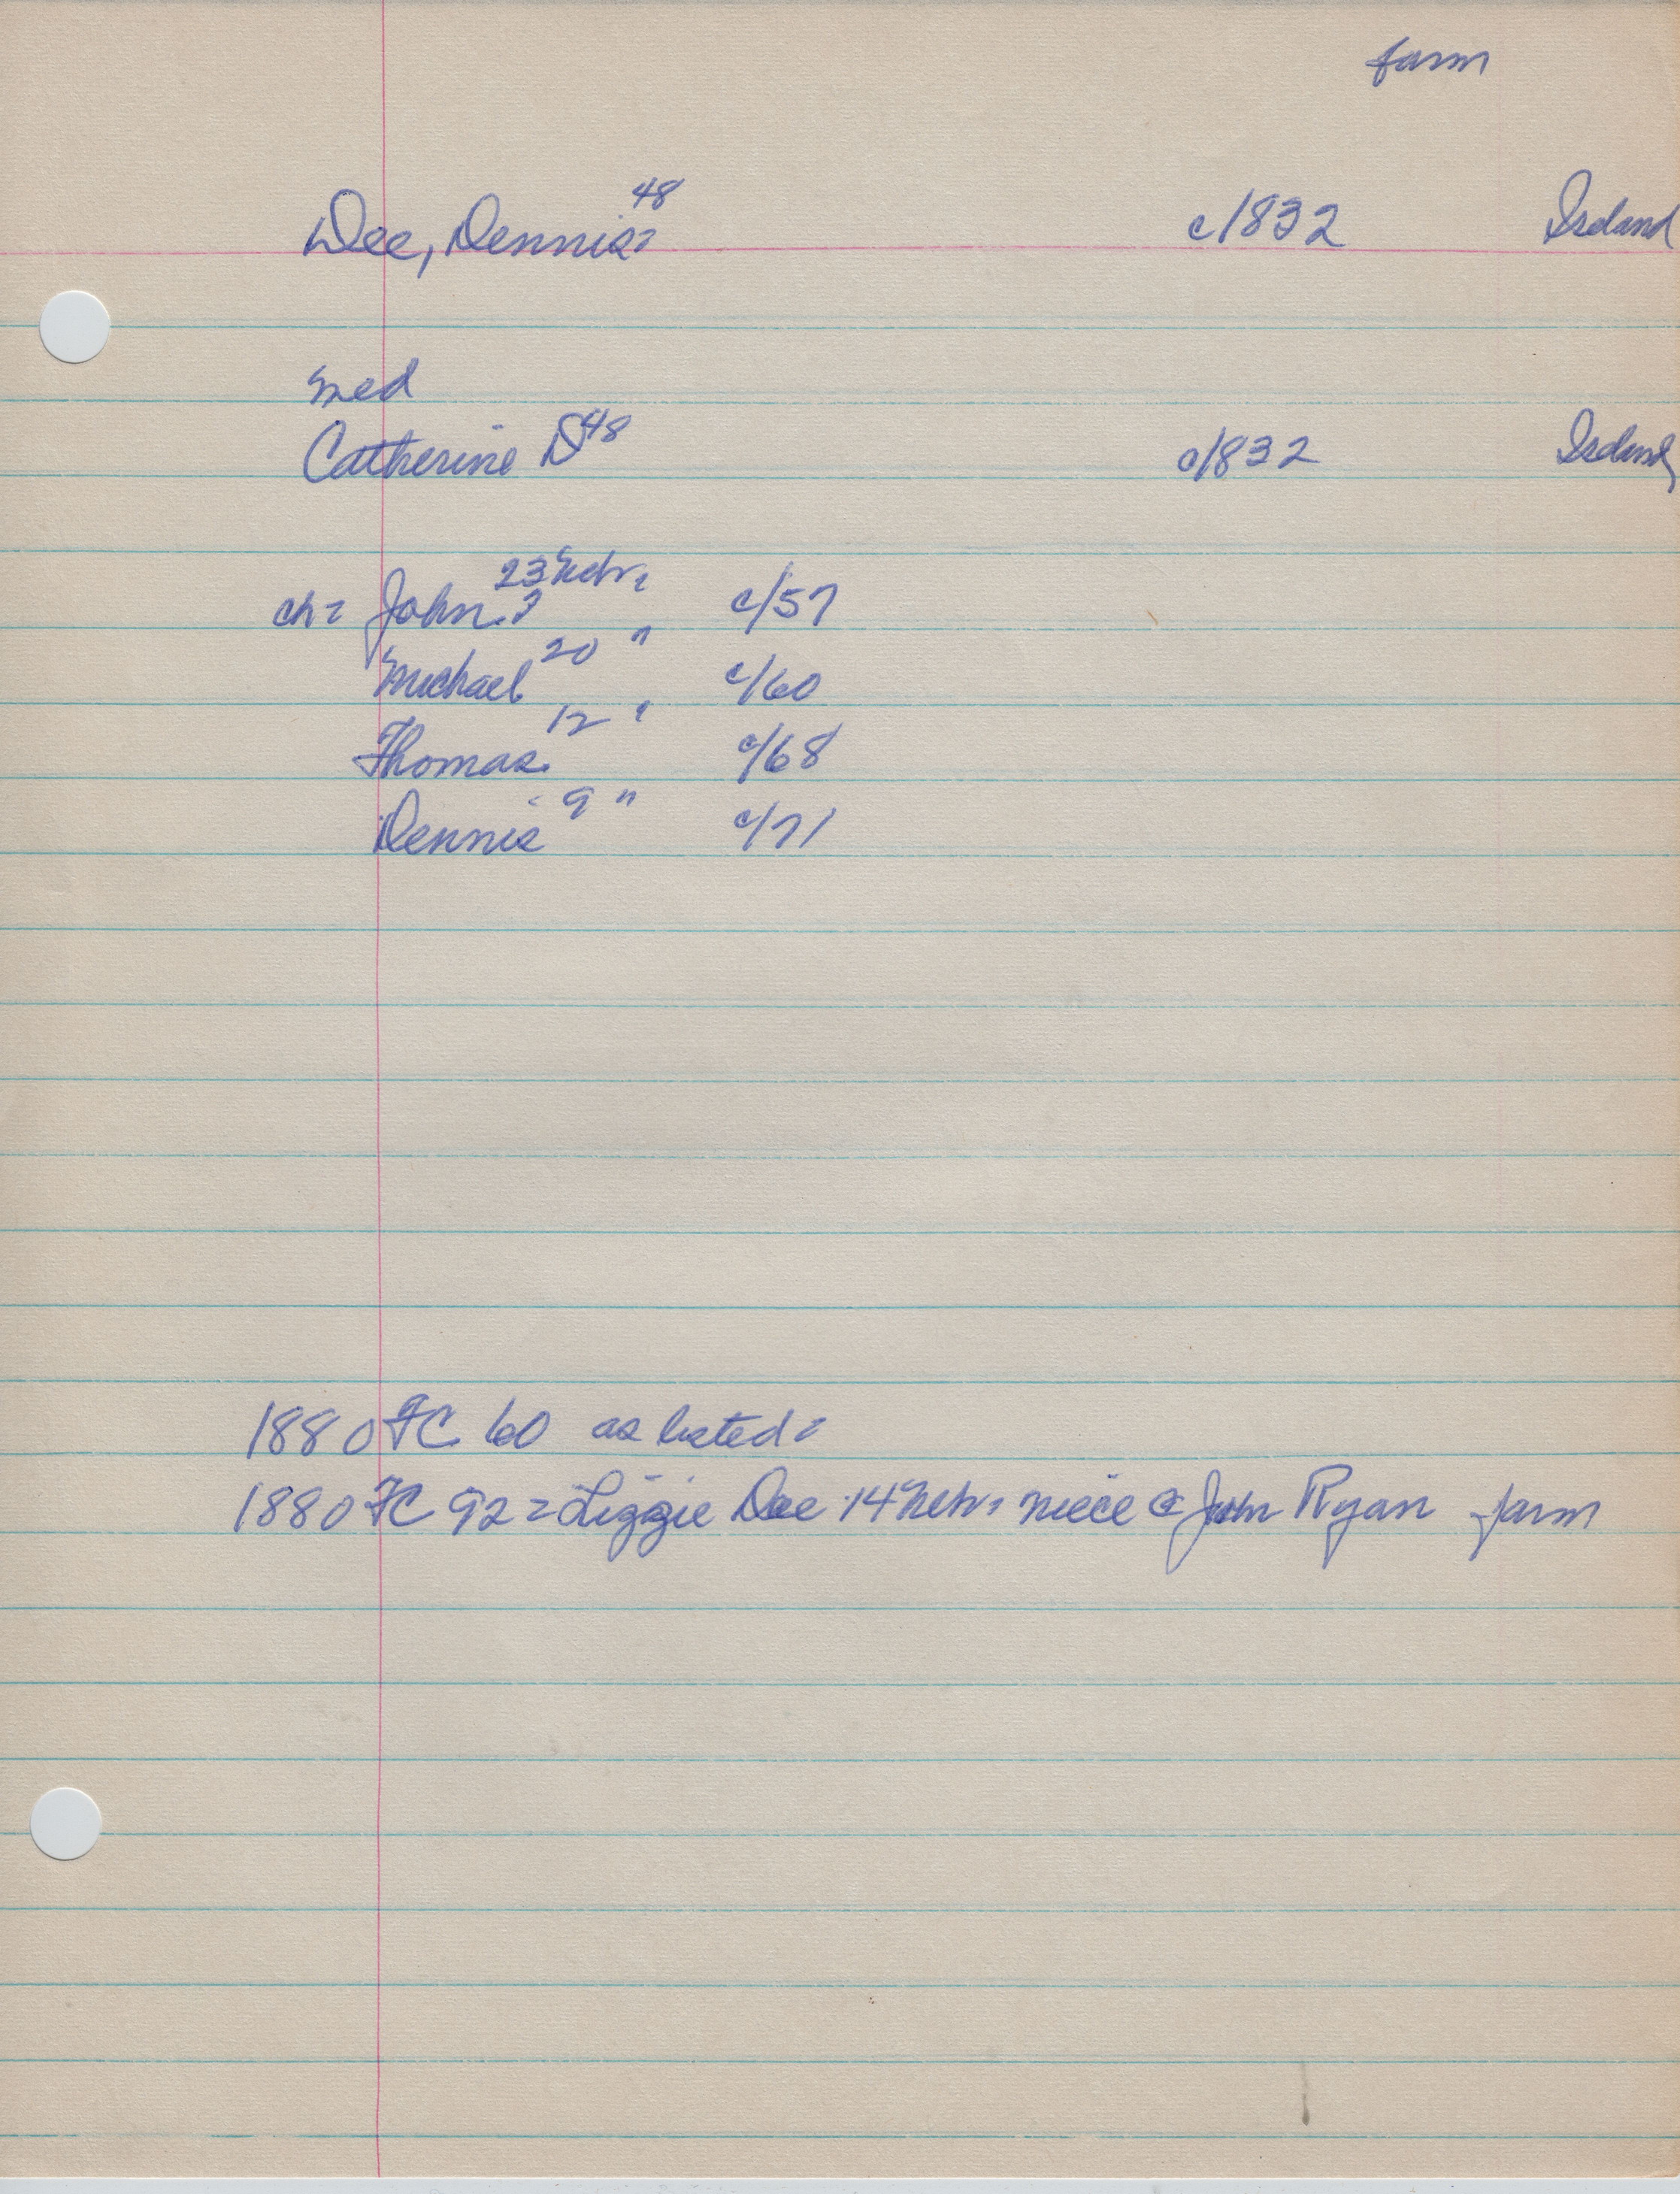 farm
Dee, Dennis= 48 c/1832 Ireland
med
Catherine D 48 c/1832 Ireland
ch= John 23 Nebr= c/57
Michael 20 " c/60
Thomas 12 " c/68
Dennis 9 " c/71
1880 FC 60 as listed=
1880 FC 92 = Lizzie Dee 14 Nebr= niece @ John Ryan farm